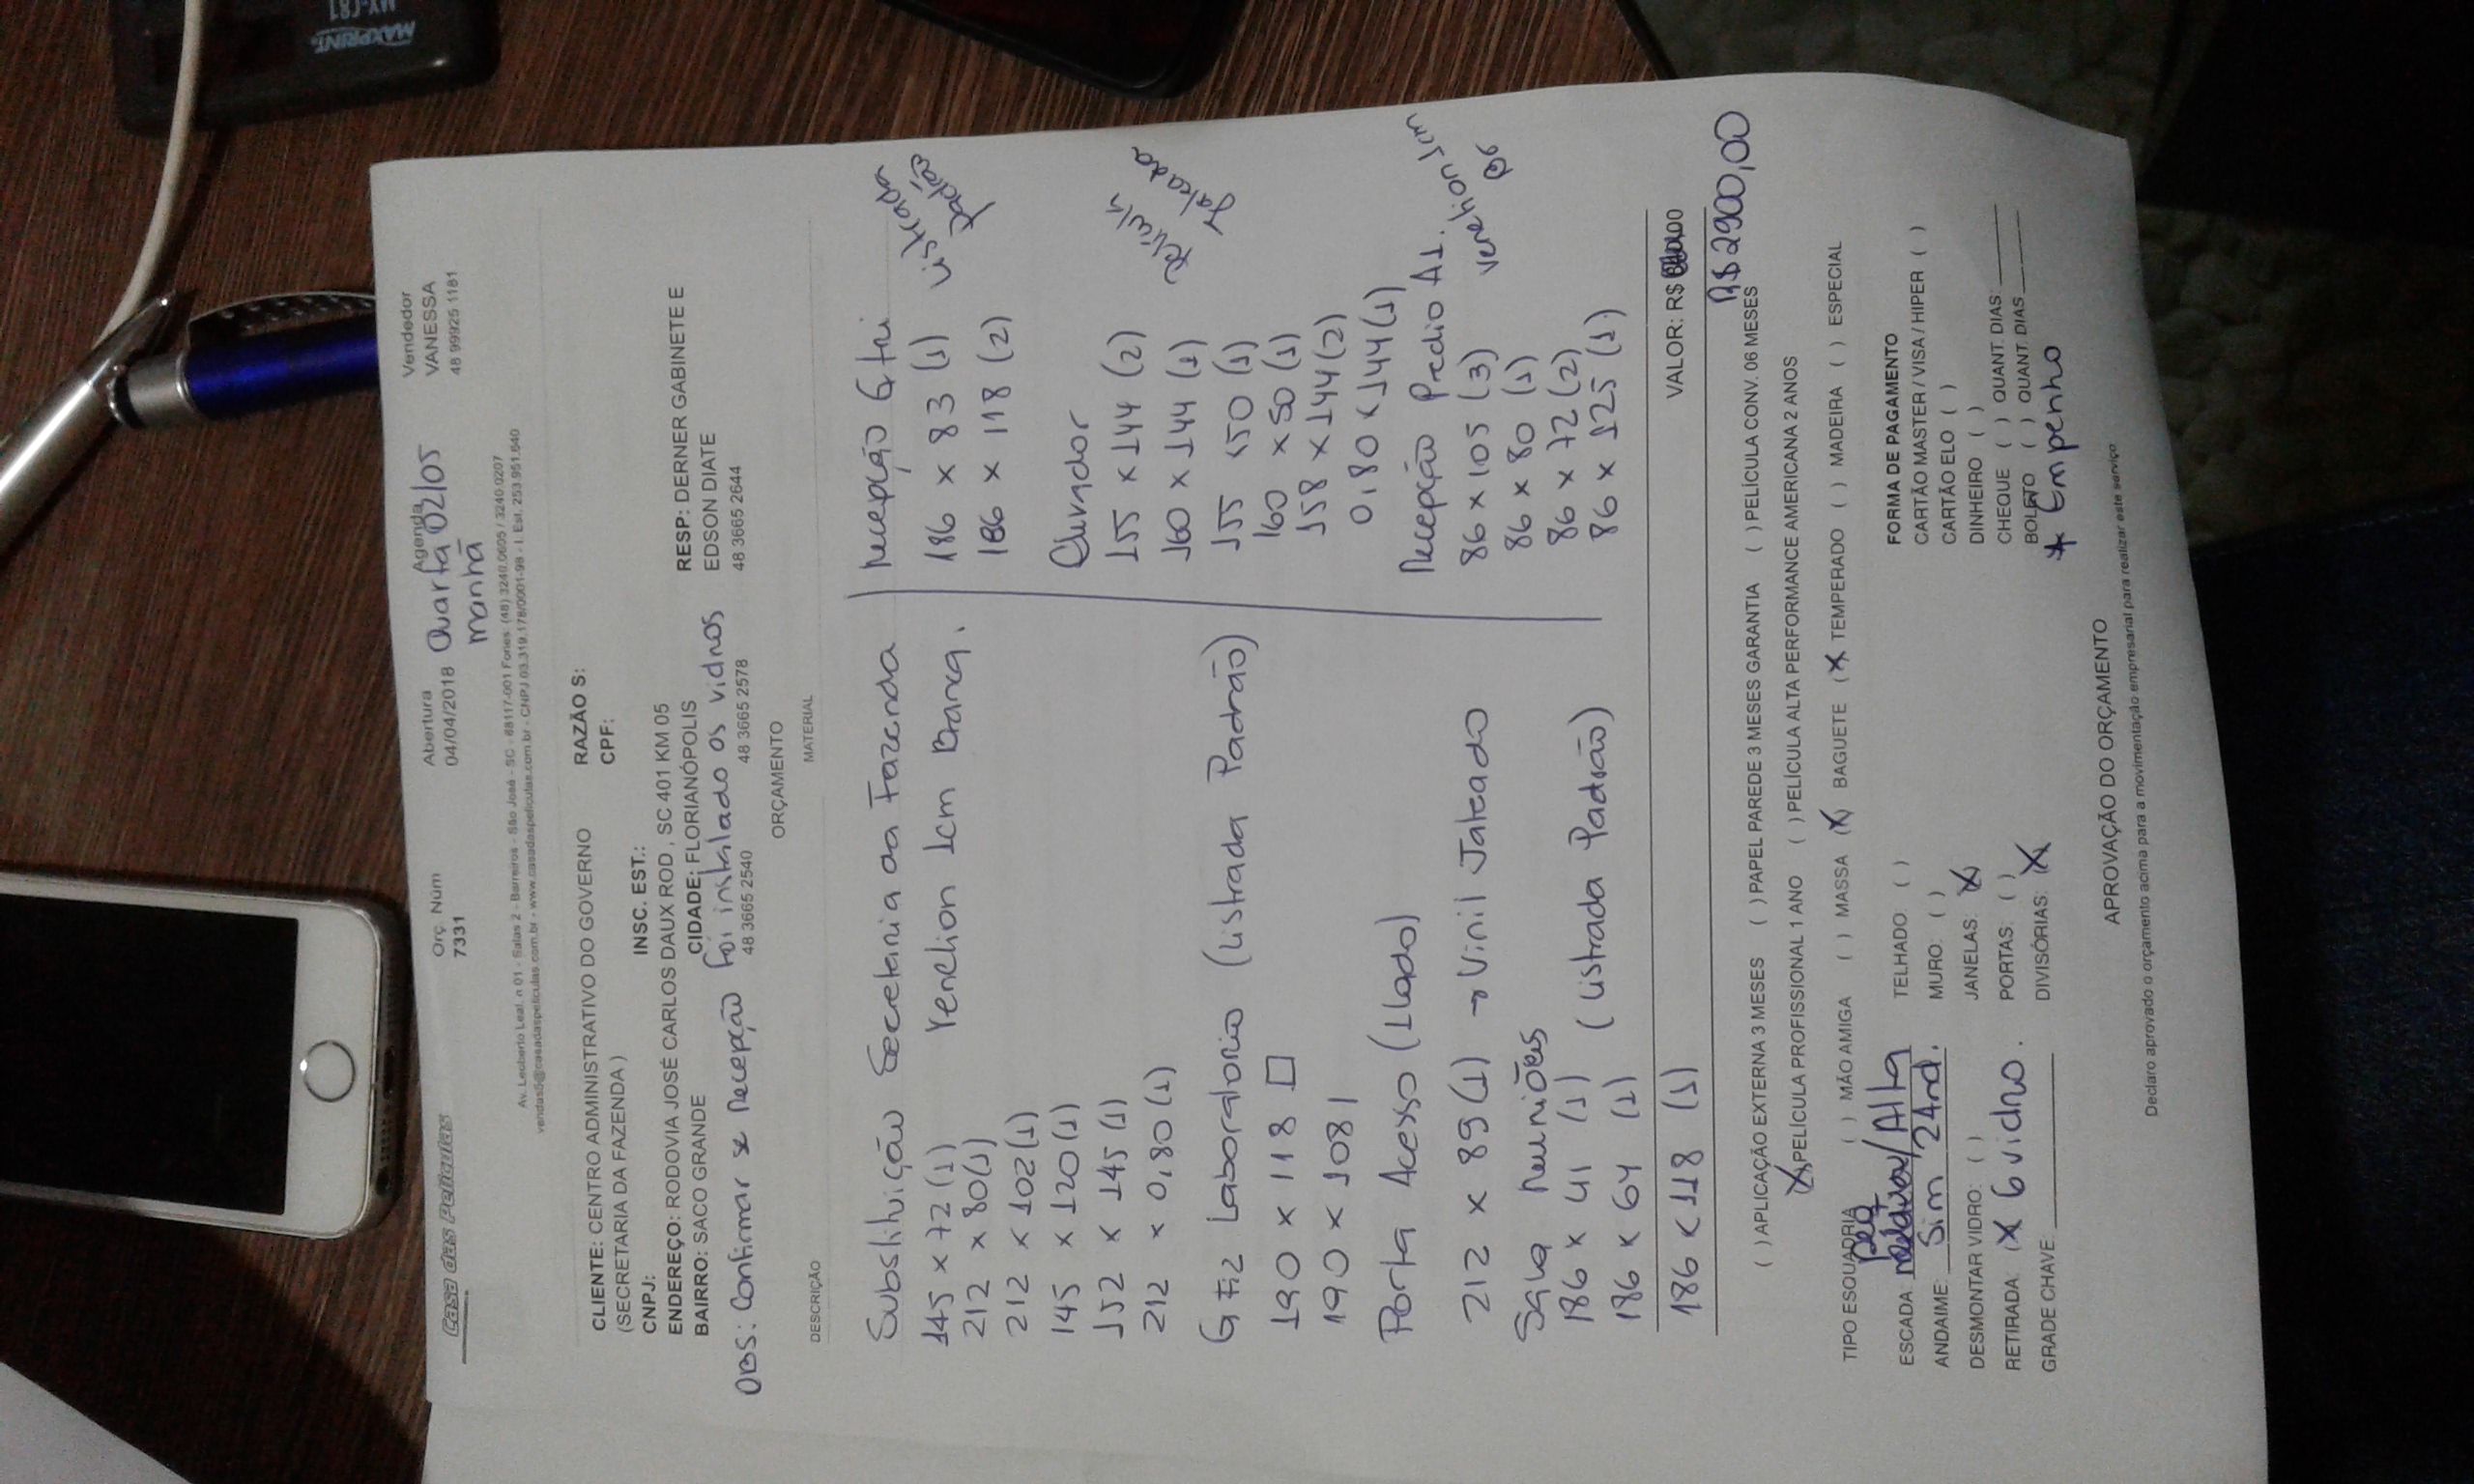 MAXPRINT
Casa das Películas
Orç. Núm
7331
Abertura
04/04/2018
Agenda
Quarta 02/05
manhã
Vendedor
VANESSA
48 99925 1181
Av. Leoberto Leal, n 01 - Salas 2 - Barreiros - São José - SC - 88117-001 Fones: (48) 3240.0605 / 3240.0207
vendas5@casadaspeliculas.com.br - www.casadaspeliculas.com.br - CNPJ 03.319.178/0001-98 - I. Est. 253.951.640
CLIENTE: CENTRO ADMINISTRATIVO DO GOVERNO
(SECRETARIA DA FAZENDA)
RAZÃO S:
CPF:
CNPJ:
INSC. EST.:
ENDEREÇO: RODOVIA JOSÉ CARLOS DAUX ROD, SC 401 KM 05
BAIRRO: SACO GRANDE
CIDADE: FLORIANÓPOLIS
RESP: DERNER GABINETE E
EDSON DIATE
OBS: Confirmar se recepção foi instalado os vidros
48 3665 2540
48 3665 2578
48 3665 2644
ORÇAMENTO
DESCRIÇÃO
MATERIAL
Substituição Secretaria da Fazenda
145 x 72 (1)
Persion 1cm Branca.
212 x 80 (1)
212 x 102 (1)
145 x 120 (1)
152 x 145 (1)
212 x 0,80 (1)
Laboratorio (Listrada Padrão)
190 x 118
190 x 108
Porta Acesso (1 Lado)
212 x 89 (1) → Vinil Jateado
Sala Reuniões
186 x 41 (1)
186 x 64 (1) (Listrada Padrão)
186 x 118 (1)
Recepção
186 x 83 (1)
186 x 118 (2)
listrada
Padrão
155 x 144 (2)
160 x 144 (1)
155 x 50 (1)
160 x 50 (1)
158 x 144 (2)
0,80 x 144 (1)
Jateado
Recepção Predio A1.
86 x 105 (3)
86 x 80 (1)
86 x 72 (2)
86 x 125 (1)
1cm
06
VALOR: R$
R$ 2900,00
( ) APLICAÇÃO EXTERNA 3 MESES ( ) PAPEL PAREDE 3 MESES GARANTIA ( ) PELÍCULA CONV. 06 MESES
(X) PELÍCULA PROFISSIONAL 1 ANO ( ) PELÍCULA ALTA PERFORMANCE AMERICANA 2 ANOS
TIPO ESQUADRIA ( ) MÃO AMIGA ( ) MASSA (X) BAGUETE (X TEMPERADO ( ) MADEIRA ( ) ESPECIAL
Peq
ESCADA: média/Alta
TELHADO: ( )
FORMA DE PAGAMENTO
ANDAIME: Sim 2 And.
MURO: ( )
CARTÃO MASTER / VISA / HIPER ( )
DESMONTAR VIDRO: ( )
JANELAS: X
CARTÃO ELO ( )
RETIRADA: X 6 vidro.
PORTAS: ( )
DINHEIRO ( )
GRADE CHAVE:
DIVISÓRIAS: X
CHEQUE ( ) QUANT. DIAS:
BOLETO ( ) QUANT. DIAS
* Empenho
APROVAÇÃO DO ORÇAMENTO
Declaro aprovado o orçamento acima para a movimentação empresarial para realizar este serviço